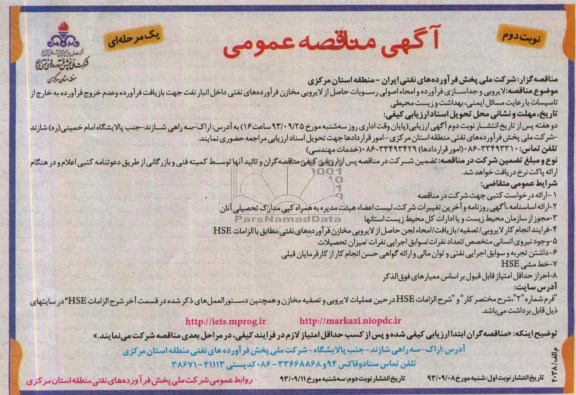 نوبت دوم
آگهی مناقصه عمومی
یک مرحله‌ای
شرکت ملی پخش فرآورده‌های نفتی ایران
منطقه استان مرکزی
مناقصه‌گزار: شرکت ملی پخش فرآورده‌های نفتی ایران - منطقه استان مرکزی
موضوع مناقصه: لایروبی و جداسازی فرآورده و امحاء اصولی رسوبات حاصل از لایروبی مخازن فرآورده‌های نفتی داخل انبار نفت جهت بازیافت فرآورده وعدم خروج فرآورده به خارج از
تاسیسات با رعایت مسائل ایمنی، بهداشت و زیست محیطی
تاریخ، مهلت و نشانی محل تحویل اسناد ارزیابی کیفی:
دو هفته پس از تاریخ انتشار نوبت دوم آگهی ارزیابی (پایان وقت اداری روز سه‌شنبه مورخ ۹۳/۰۹/۲۵ ساعت ۱۶) به آدرس: اراک-سه راهی شازند- جنب پالایشگاه امام خمینی(ره) شازند
-شرکت ملی پخش فرآورده‌های نفتی منطقه مرکزی - امور قراردادها جهت تحویل اسناد ارزیابی مراجعه حضوری نمایند.
تلفن تماس: ۳۳۴۹۳۳۱۰-۰۸۶ (امور قراردادها) ۳۳۴۹۳۴۲۹-۰۸۶ (خدمات مهندسی)
نوع و مبلغ تضمین شرکت در مناقصه: تضمین شرکت در مناقصه پس از ارزیابی کیفی مناقصه‌گران و تائید آنها توسط کمیته فنی و بازرگانی از طریق دعوتنامه کتبی اعلام و در هنگام
ارائه پاکت نرخ دریافت خواهد شد.
شرایط عمومی متقاضی:
۱-ارائه درخواست کتبی جهت شرکت در مناقصه
۲-ارائه اساسنامه، آگهی روزنامه و آخرین تغییرات شرکت، لیست اعضاء هیئت مدیره به همراه کپی مدارک تحصیلی آنان
۳-مجوز از سازمان محیط زیست و یا ادارات کل محیط زیست استانها
۴-فرایند انجام کار لایروبی / تصفیه / بازیافت / امحاء لجن حاصل از لایروبی مخازن فرآورده‌های نفتی مطابق با الزامات HSE
۵-وجود نیروی انسانی متخصص / تعداد نفرات / سوابق اجرایی نفرات / میزان تحصیلات
۶-داشتن تجربه و سوابق اجرایی نفتی و توان مالی و ارائه گواهی حسن انجام کار از کارفرمایان قبلی
۷-خط مشی HSE
۸-احراز حداقل امتیاز قابل قبول بر اساس معیارهای فوق‌الذکر
"فرم شماره ۲"، شرح مختصر کار" و "شرح الزامات HSE در حین عملیات لایروبی و تصفیه مخازن و همچنین دستورالعمل‌های ذکر شده در قسمت آخر شرح الزامات HSE" در سایتهای
ذیل قابل برداشت می‌باشد.
http://iets.mprog.ir http://markazi.niopdc.ir
توضیح اینکه: «مناقصه‌گران ابتدا ارزیابی کیفی شده و پس از کسب حداقل امتیاز لازم در فرایند کیفی، در مراحل بعدی مناقصه شرکت می‌نمایند.»
آدرس: اراک- سه راهی شازند- جنب پالایشگاه- شرکت ملی پخش فرآورده های نفتی منطقه استان مرکزی
تلفن تماس ستاد و فاکس ۹۴ و ۳۳۶۶۸۸۶۸-۰۸۶ کدپستی ۴۱۱۱۳-۳۸۶۷۱
تاریخ انتشار نوبت اول: شنبه مورخ ۹۳/۰۹/۰۸ تاریخ انتشار نوبت دوم: سه‌شنبه مورخ ۹۳/۰۹/۱۱
روابط عمومی شرکت ملی پخش فرآورده‌های نفتی منطقه استان مرکزی
م الف/۲۰۳۸
ParsNamadData